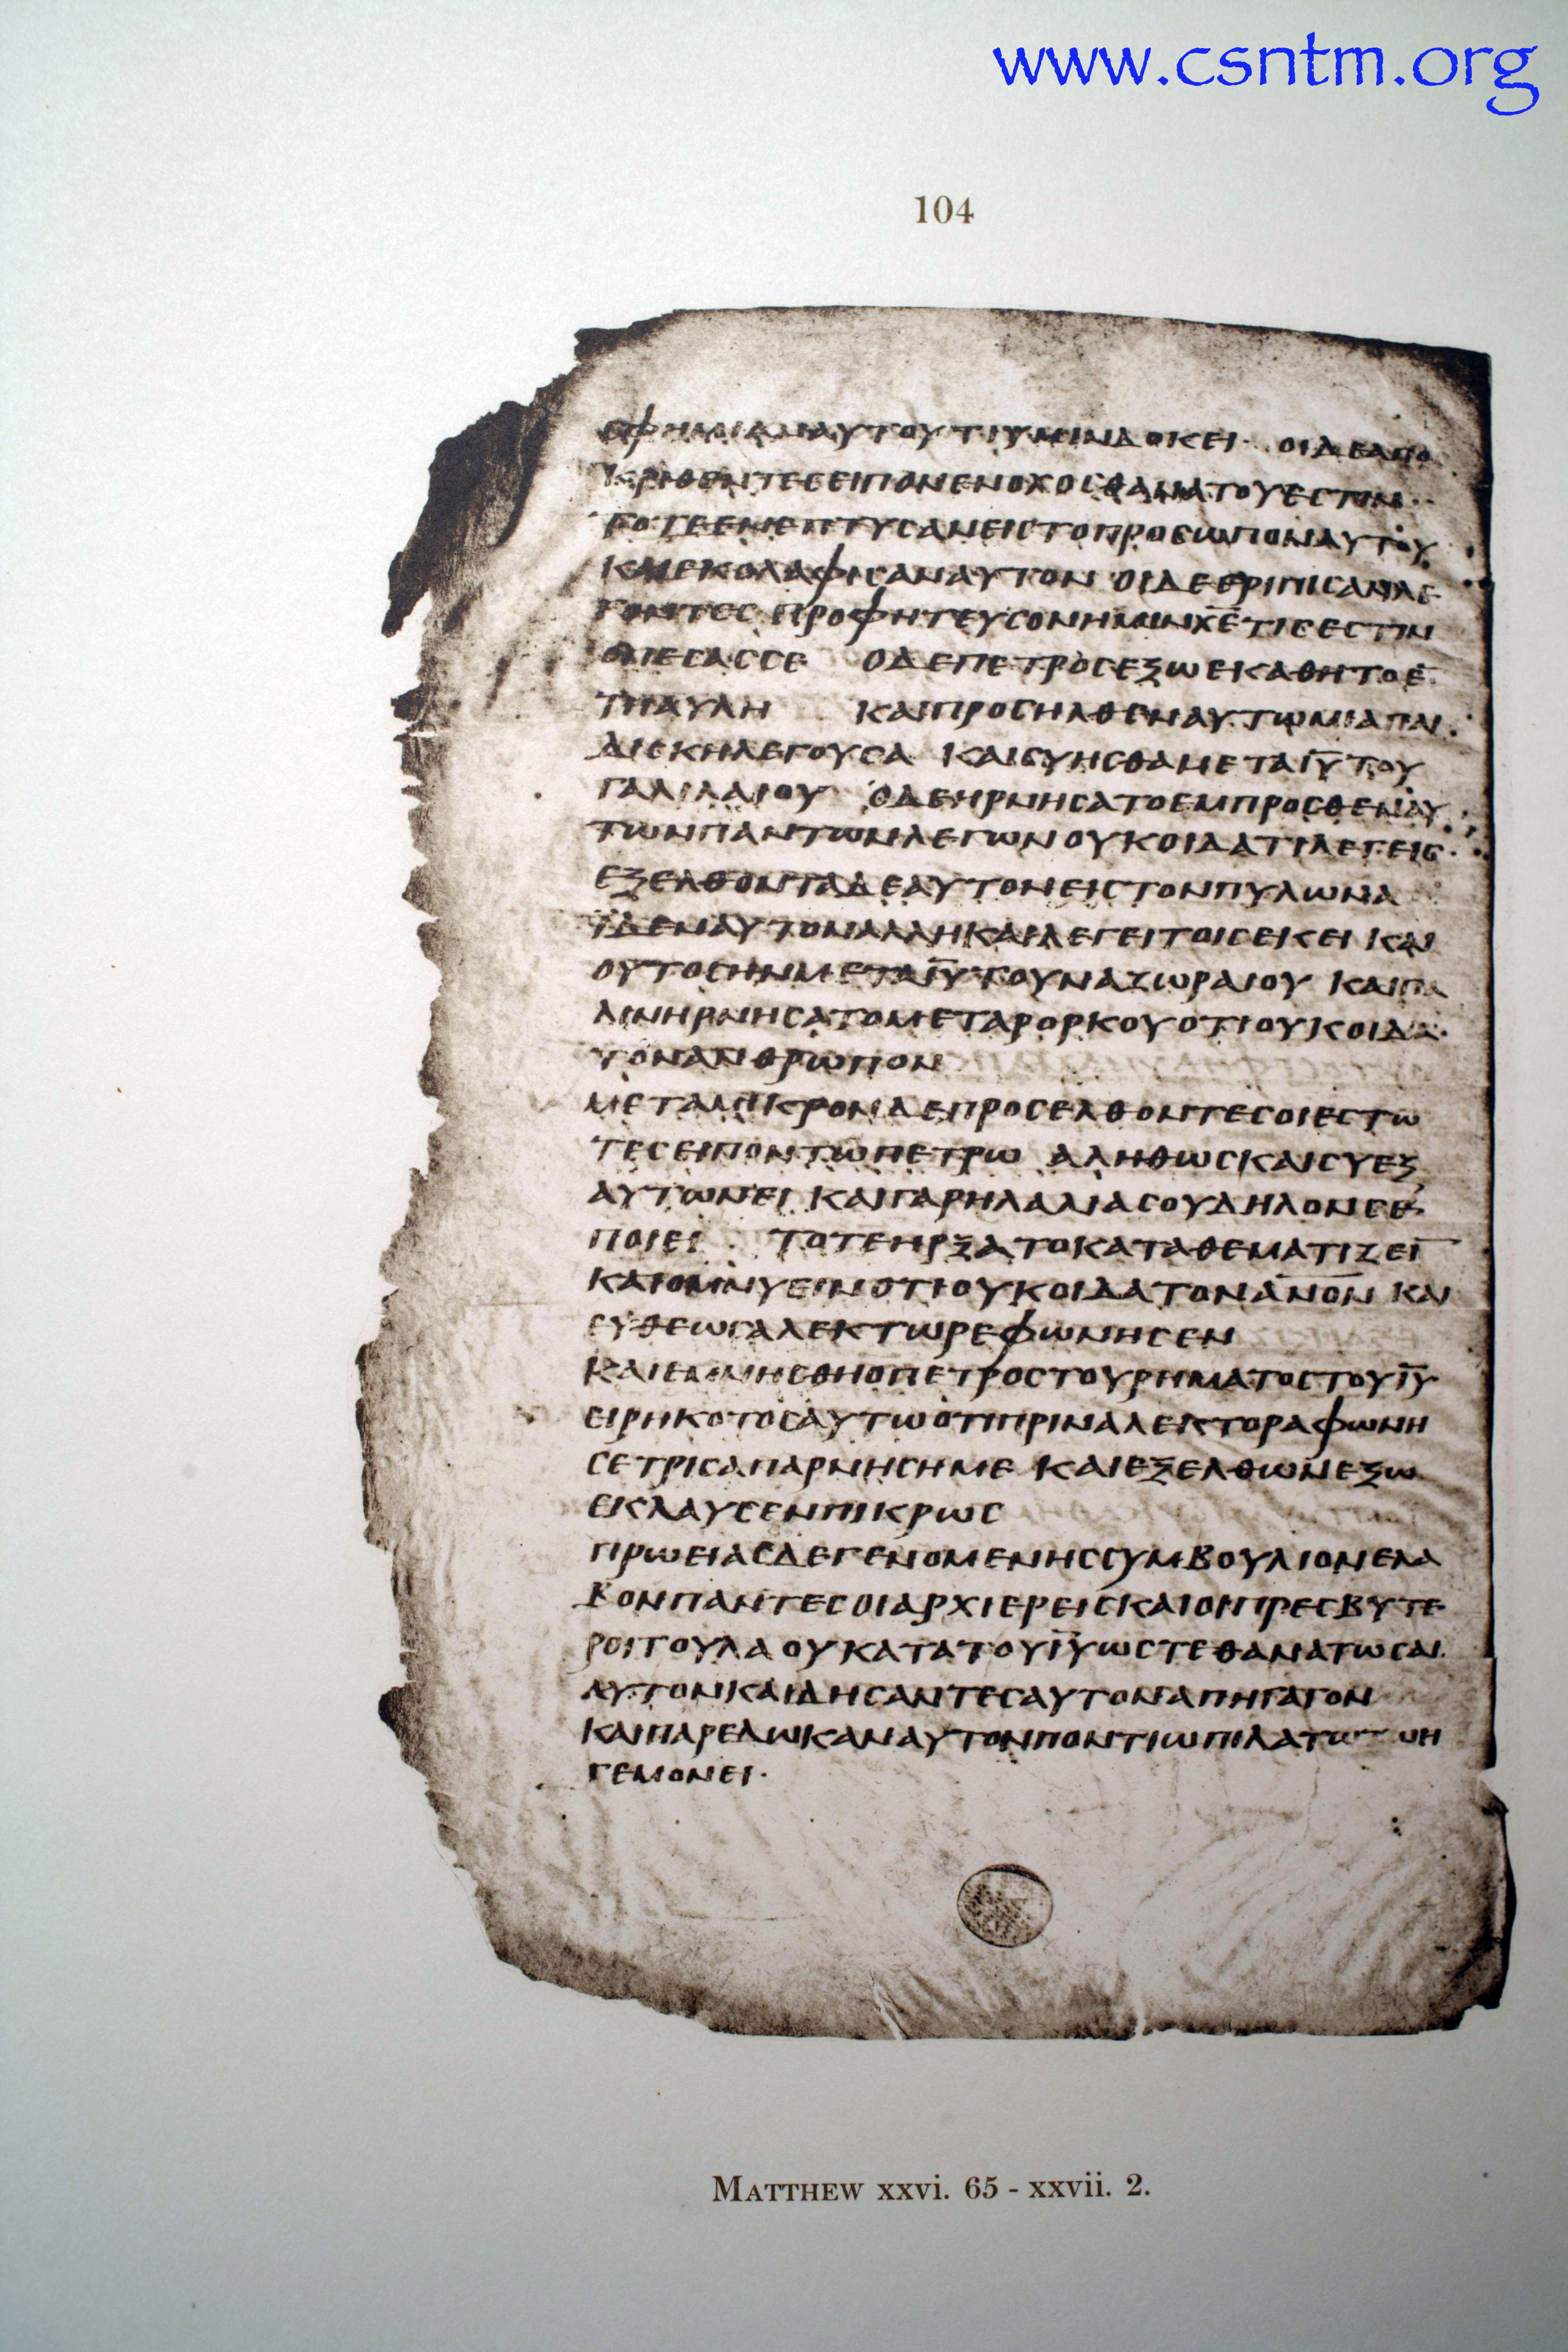 www.csntm.org
104
ΦΗΜΙΑΝΑΥΤΟΥΤΙΥΜΙΝΔΟΚΕΙ· ΟΙΔΕΑΠΟ
ΚΡΙΘΕΝΤΕCΕΙΠΟΝΕΝΟΧΟCΘΑΝΑΤΟΥΕCΤΙΝ·
ΤΟΤΕΕΝΕΠΤΥCΑΝΕΙCΤΟΠΡΟCΩΠΟΝΑΥΤΟΥ
ΚΑΙΕΚΟΛΑΦΙCΑΝΑΥΤΟΝ ΟΙΔΕΕΡΙΠΙCΑΝΛΕ
ΓΟΝΤΕC ΠΡΟΦΗΤΕΥCΟΝΗΜΙΝΧ̅Ε̅ΤΙCΕCΤΙΝ
ΟΠΕCΑCCΕ ΟΔΕΠΕΤΡΟCΕΞΩΕΚΑΘΗΤΟΕ̅
ΤΗΑΥΛΗ ΚΑΙΠΡΟCΗΛΘΕΝΑΥΤΩΜΙΑΠΑΙ
ΔΙCΚΗΛΕΓΟΥCΑ ΚΑΙCΥΗCΘΑΜΕΤΑΙ̅Υ̅ΤΟΥ
ΓΑΛΙΛΑΙΟΥ ΟΔΕΗΡΝΗCΑΤΟΕΜΠΡΟCΘΕΝΑΥ
ΤΩΝΠΑΝΤΩΝΛΕΓΩΝΟΥΚΟΙΔΑΤΙΛΕΓΕΙC·
ΕΞΕΛΘΟΝΤΑΔΕΑΥΤΟΝΕΙCΤΟΝΠΥΛΩΝΑ
ΙΔΕΝΑΥΤΟΝΑΛΛΗΚΑΙΛΕΓΕΙΤΟΙCΕΚΕΙ ΚΑΙ
ΟΥΤΟCΗΝΜΕΤΑΙ̅Υ̅ΤΟΥΝΑΖΩΡΑΙΟΥ ΚΑΙΠΑ
ΛΙΝΗΡΝΗCΑΤΟΜΕΤΑΡΟΡΚΟΥΟΤΙΟΥΚΟΙΔΑ·
ΤΟΝΑΝΘΡΩΠΟΝ
ΜΕΤΑΜΙΚΡΟΝΔΕΠΡΟCΕΛΘΟΝΤΕCΟΙΕCΤΩ
ΤΕCΕΙΠΟΝΤΩΠΕΤΡΩ ΑΛΗΘΩCΚΑΙCΥΕΞ
ΑΥΤΩΝΕΙ ΚΑΙΓΑΡΗΛΑΛΙΑCΟΥΔΗΛΟΝCΕ
ΠΟΙΕΙ ΤΟΤΕΗΡΞΑΤΟΚΑΤΑΘΕΜΑΤΙΖΕΙ̅
ΚΑΙΟΜΝΥΕΙΝΟΤΙΟΥΚΟΙΔΑΤΟΝΑ̅Ν̅Ο̅Ν̅ ΚΑΙ
ΕΥΘΕΩCΑΛΕΚΤΩΡΕΦΩΝΗCΕΝ
ΚΑΙΕΜΝΗCΘΗΟΠΕΤΡΟCΤΟΥΡΗΜΑΤΟCΤΟΥΙ̅Υ̅
ΕΙΡΗΚΟΤΟCΑΥΤΩΟΤΙΠΡΙΝΑΛΕΚΤΟΡΑΦΩΝΗ
CΕΤΡΙCΑΠΑΡΝΗCΗΜΕ ΚΑΙΕΞΕΛΘΩΝΕΞΩ
ΕΚΛΑΥCΕΝΠΙΚΡΩC
ΠΡΩΕΙΑCΔΕΓΕΝΟΜΕΝΗCCΥΜΒΟΥΛΙΟΝΕΛΑ
ΒΟΝΠΑΝΤΕCΟΙΑΡΧΙΕΡΕΙCΚΑΙΟΙΠΡΕCΒΥΤΕ
ΡΟΙΤΟΥΛΑΟΥΚΑΤΑΤΟΥΙ̅Υ̅ΩCΤΕΘΑΝΑΤΩCΑΙ
ΑΥΤΟΝΚΑΙΔΗCΑΝΤΕCΑΥΤΟΝΑΠΗΓΑΓΟΝ
ΚΑΙΠΑΡΕΔΩΚΑΝΑΥΤΟΝΠΟΝΤΙΩΠΙΛΑΤΩΤΩΗ
ΓΕΜΟΝΕΙ·
MATTHEW xxvi. 65 - xxvii. 2.